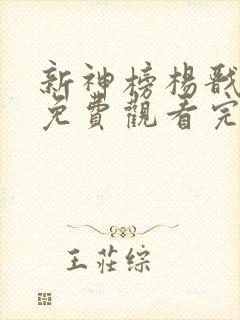 新神榜楊戩
免費觀看完
王莊綜